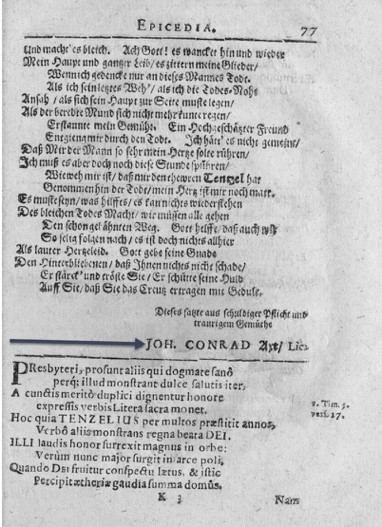 EPICEDIA. 77
Und macht' es bleich. Ach Gott! es wancket hin und wieder
Mein Haupt und gantzer Leib/ es zittern meine Glieder/
Wenn ich gedencke nur an dieses Mannes Todt.
Als ich sein letztes Weh'/ als ich die Todes-Noht
Ansah/ als sich sein Haupt zur Seite muste legen/
Als der beredte Mund sich nicht mehr kunte regen/
Erstaunte mein Gemühte. Ein Hochgeschätzter Freund
Entgieng mir durch den Todt. Ich hätt' es nicht gemeint/
Daß Mir der Mann so sehr mein Hertze solte rühren/
Ich muß es aber doch noch diese Stunde spühren/
Wie weh mir ist/ daß nur den theuren Tentzel hat
Genommen hin der Todt/ mein Hertz ist mir noch matt.
Es muste seyn/ was hilffts/ es kan nichts wiederstehen
Des bleichen Todes Macht/ wir müssen alle gehen
Den schon geähnten Weg. Gott hilffe/ daß auch wir
So selig folgen nach/ es ist doch nichts allhier
Als lauter Hertzeleid. Gott gebe seine Gnade
Den Hinterbliebenen/ daß Ihnen nichts nicht schade/
Er stärck' und tröste Sie/ Er schütte seine Huld
Auff Sie/ daß Sie das Creutz ertragen mit Gedult.
Dieses satzte aus schuldiger Pflicht und
traurigem Gemüthe
JOH. CONRAD Axt/ Lic.
PResbyteri, prosunt aliis qui dogmate sanô
perq; illud monstrant dulce salutis iter,
A cunctis meritò duplici dignentur honore
expressis verbis Litera sacra monet.
1. Tim. 5.
vers. 17.
Hoc quia TENZELIUS per multos præstitit annos,
Verbô aliis monstrans regna beata DEI.
ILLI laudis honor surrexit magnus in orbe:
Verùm nunc major surgit in arce poli,
Quando DEI fruitur conspectu lætus, & istic
Percipit ætheriæ gaudia summa domûs.
K 3 Nam